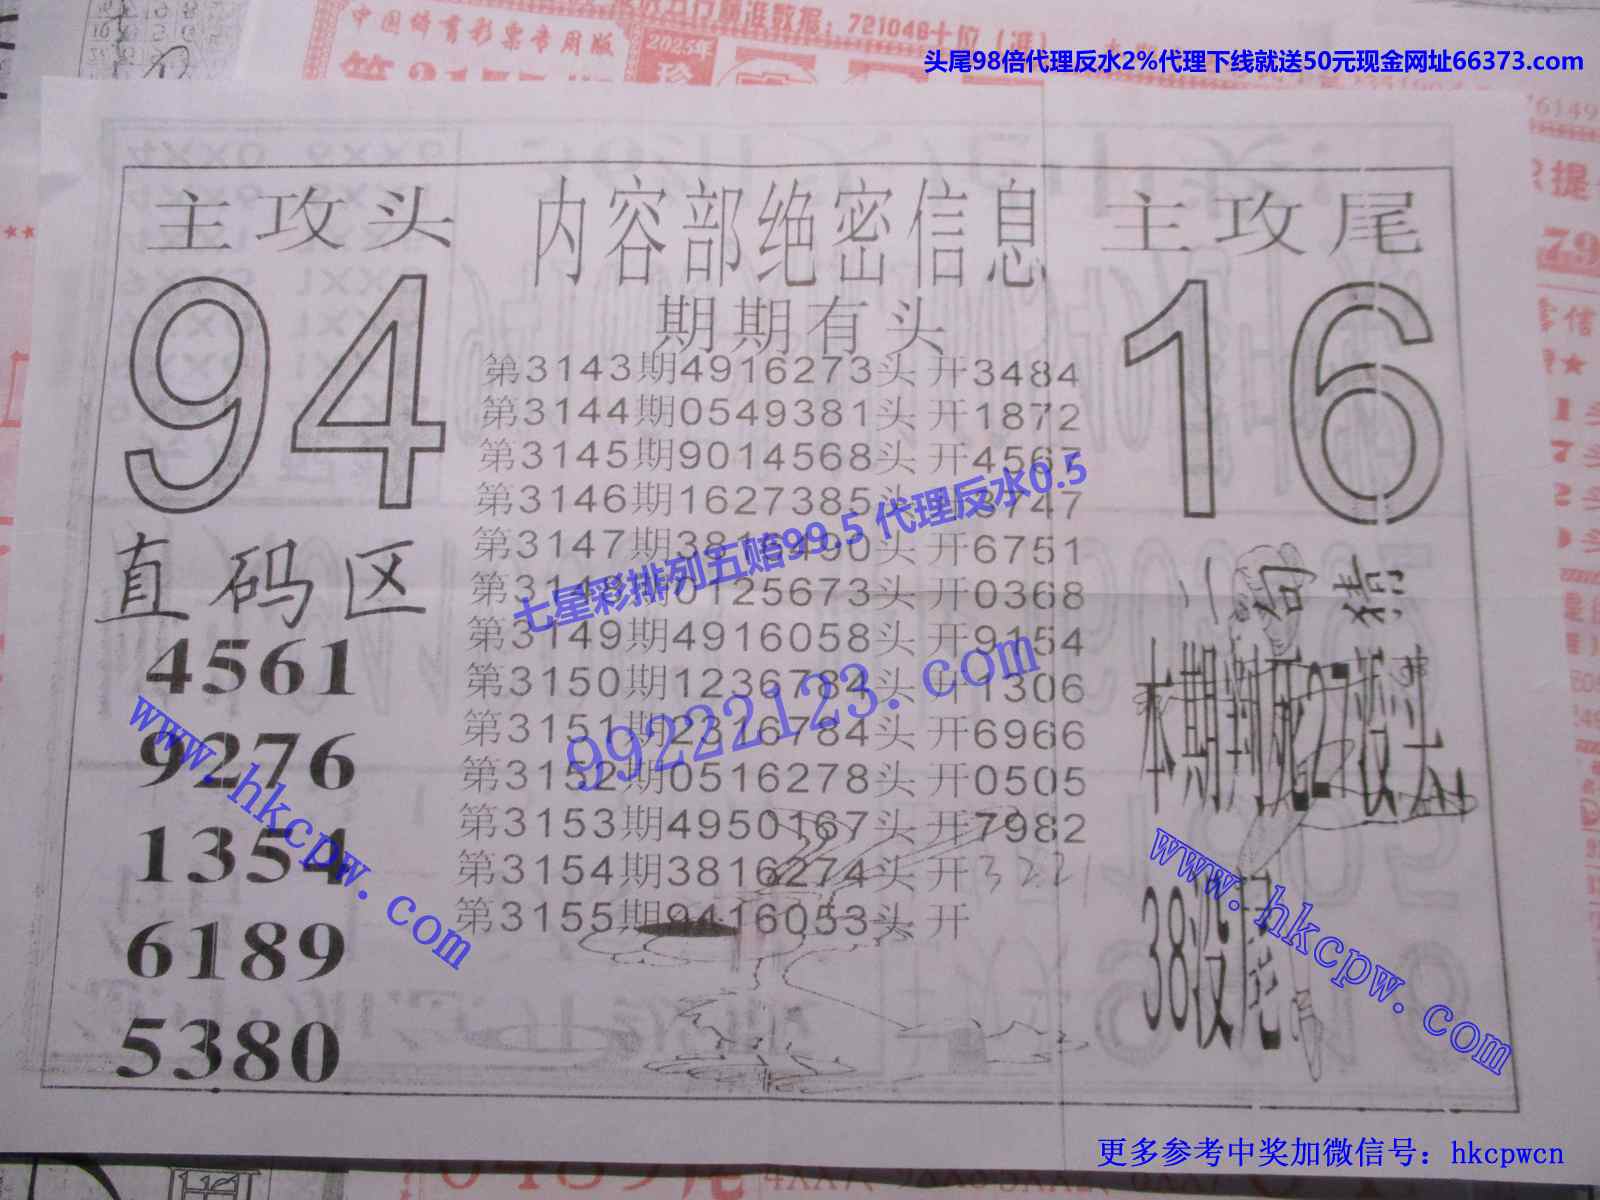 中国体育彩票专用版
2025年
头尾98倍代理反水2%代理下线就送50元现金网址66373.com
主攻头
94
内容部绝密信息
期期有头
主攻尾
16
第3143期4916273头 开3484
第3144期0549381头 开1872
第3145期9014568头 开4567
第3146期1627385头 开3747
第3147期3816490头 开6751
第3148期0125673头 开0368
第3149期4916058头 开9154
第3150期1236784头 开1306
第3151期2316784头 开6966
第3152期0516278头 开0505
第3153期4950167头 开7982
第3154期3816274头 开3221
第3155期9416053头 开
七星彩排列五赔99.5 代理反水0.5
99222123.com
直码区
4561
9276
1354
6189
5380
www.hkcpw.com
二句猜
本期判死27没头
38没尾
www.hkcpw.com
更多参考中奖加微信号：hkcpwcn